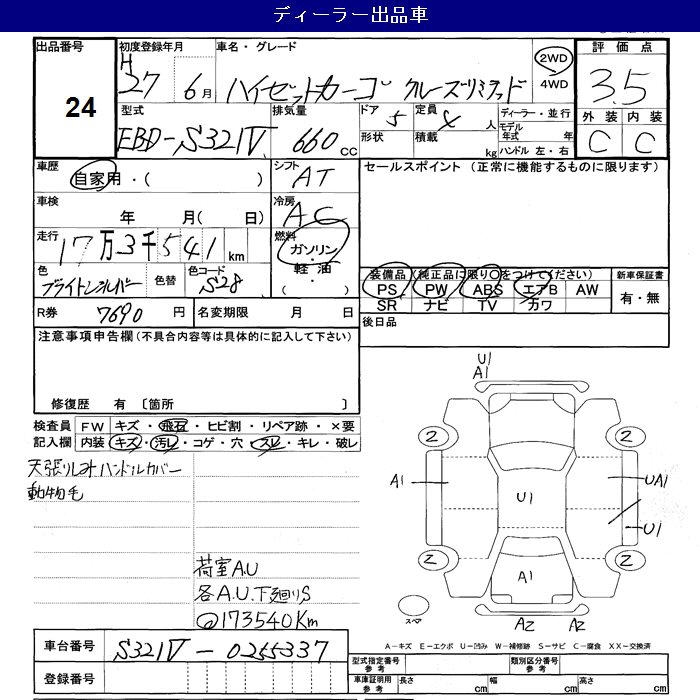 ディーラー出品車
出品番号 初度登録年月 車名・グレード 2WD 評価点
24
H27 6月 ハイゼットカーゴ クルーズリミテッド 4WD 3.5
型式 排気量 ドア 5 定員 4 人 ディーラー・並行 外装 内装
EBD-S321V 660 CC 形状 積載 kg モデル年式 年 C C
ハンドル 左・右
車歴 シフト セールスポイント (正常に機能するものに限ります)
自家用・( ) AT
車検 冷房
年 月( 日) AC
走行 燃料
17万3千541 km ガソリン・軽油・( )
色 色替 色コード 装備品 (純正品に限り○をつけてください) 新車保証書
ブライトシルバー S28 PS PW ABS エアB AW 有・無
SR ナビ TV カワ
R券 7690 円 名変期限 月 日 後日品
注意事項申告欄 (不具合内容等は具体的に記入して下さい)
修復歴 有 〔箇所 〕
検査員 FW キズ・飛石・ヒビ割・リペア跡・×要
記入欄 内装 キズ・汚レ・コゲ・穴・スレ・キレ・破レ
天張りしみ ハンドルカバー
動物毛
荷室A.U
各A.U.下廻りS
@173540Km
U1
A1
2 2
A1 U1 UA1
U1
2 2
A1
スペア
A2 A2
A－キズ E－エクボ U－凹み W－補修跡 S－サビ C－腐食 XX－交換済
車台番号 S321V－0255337
登録番号
型式指定番号 参考 類別区分番号 参考
車庫証明用 参考 長さ cm 幅 cm 高さ cm